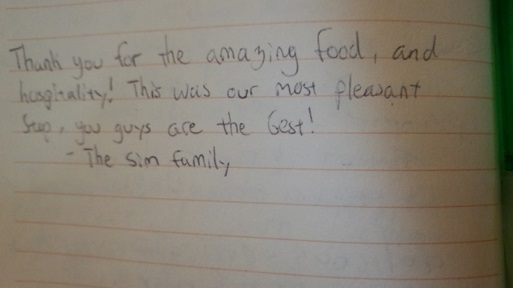 Thank you for the amazing food, and
hospitality! This was our most pleasant
Stop, you guys are the best!
- The Sim family